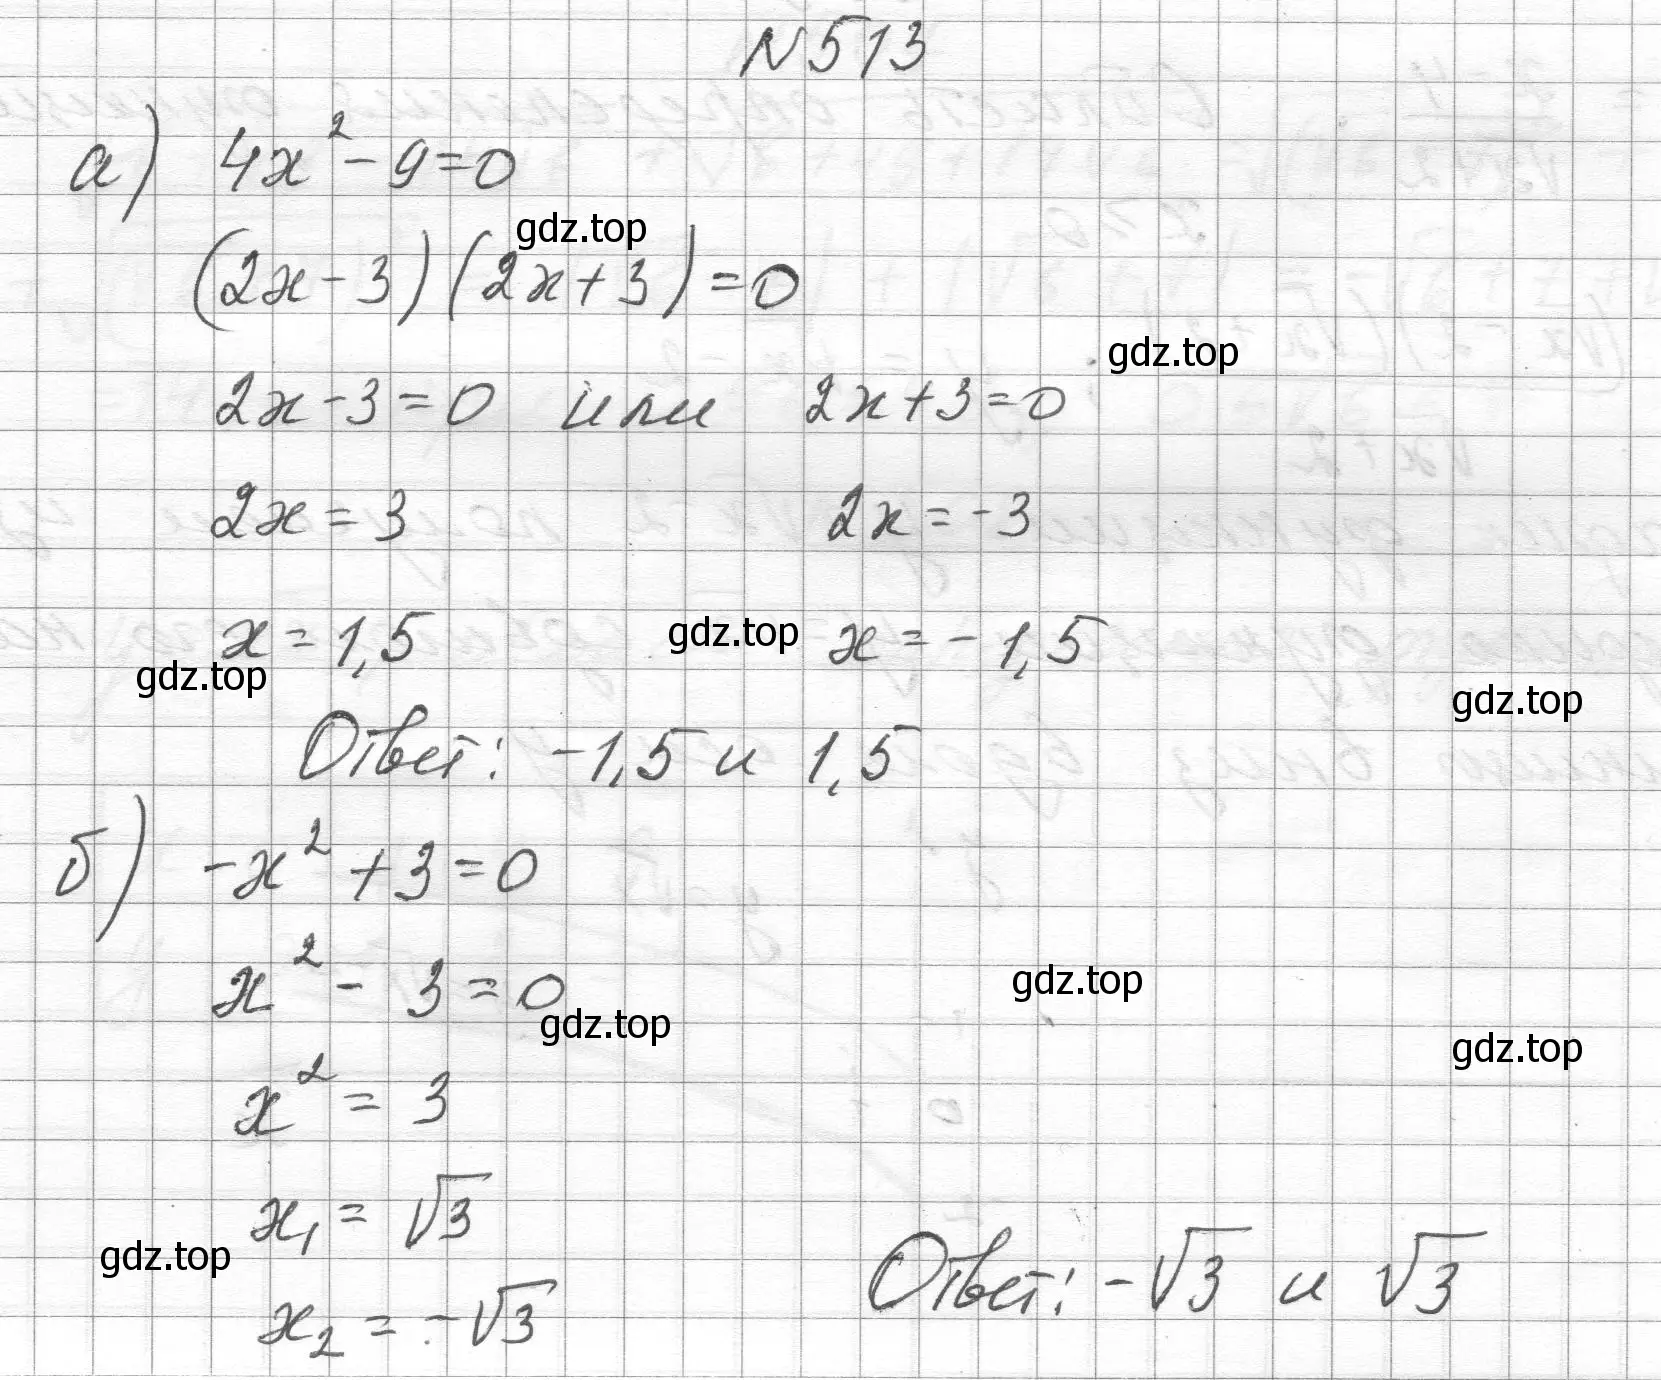 N513
а) 4x² - 9 = 0
gdz.top
(2x - 3)(2x + 3) = 0
gdz.top
2x - 3 = 0 или 2x + 3 = 0
2x = 3 2x = -3
x = 1,5 gdz.top x = -1,5
gdz.top
gdz.top
Ответ: -1,5 и 1,5
б) -x² + 3 = 0
x² - 3 = 0
gdz.top
gdz.top
gdz.top
x² = 3
x₁ = √3
gdz.top
x₂ = -√3
Ответ: -√3 и √3